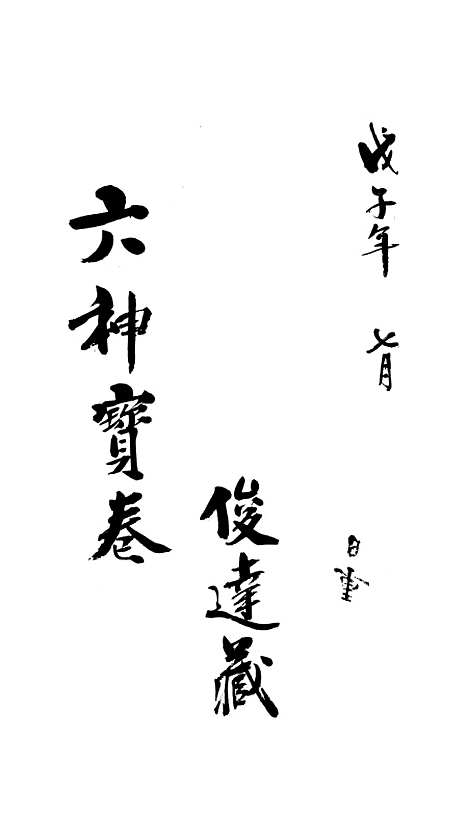 戊子年 七月 日
俊達藏
六神寶卷